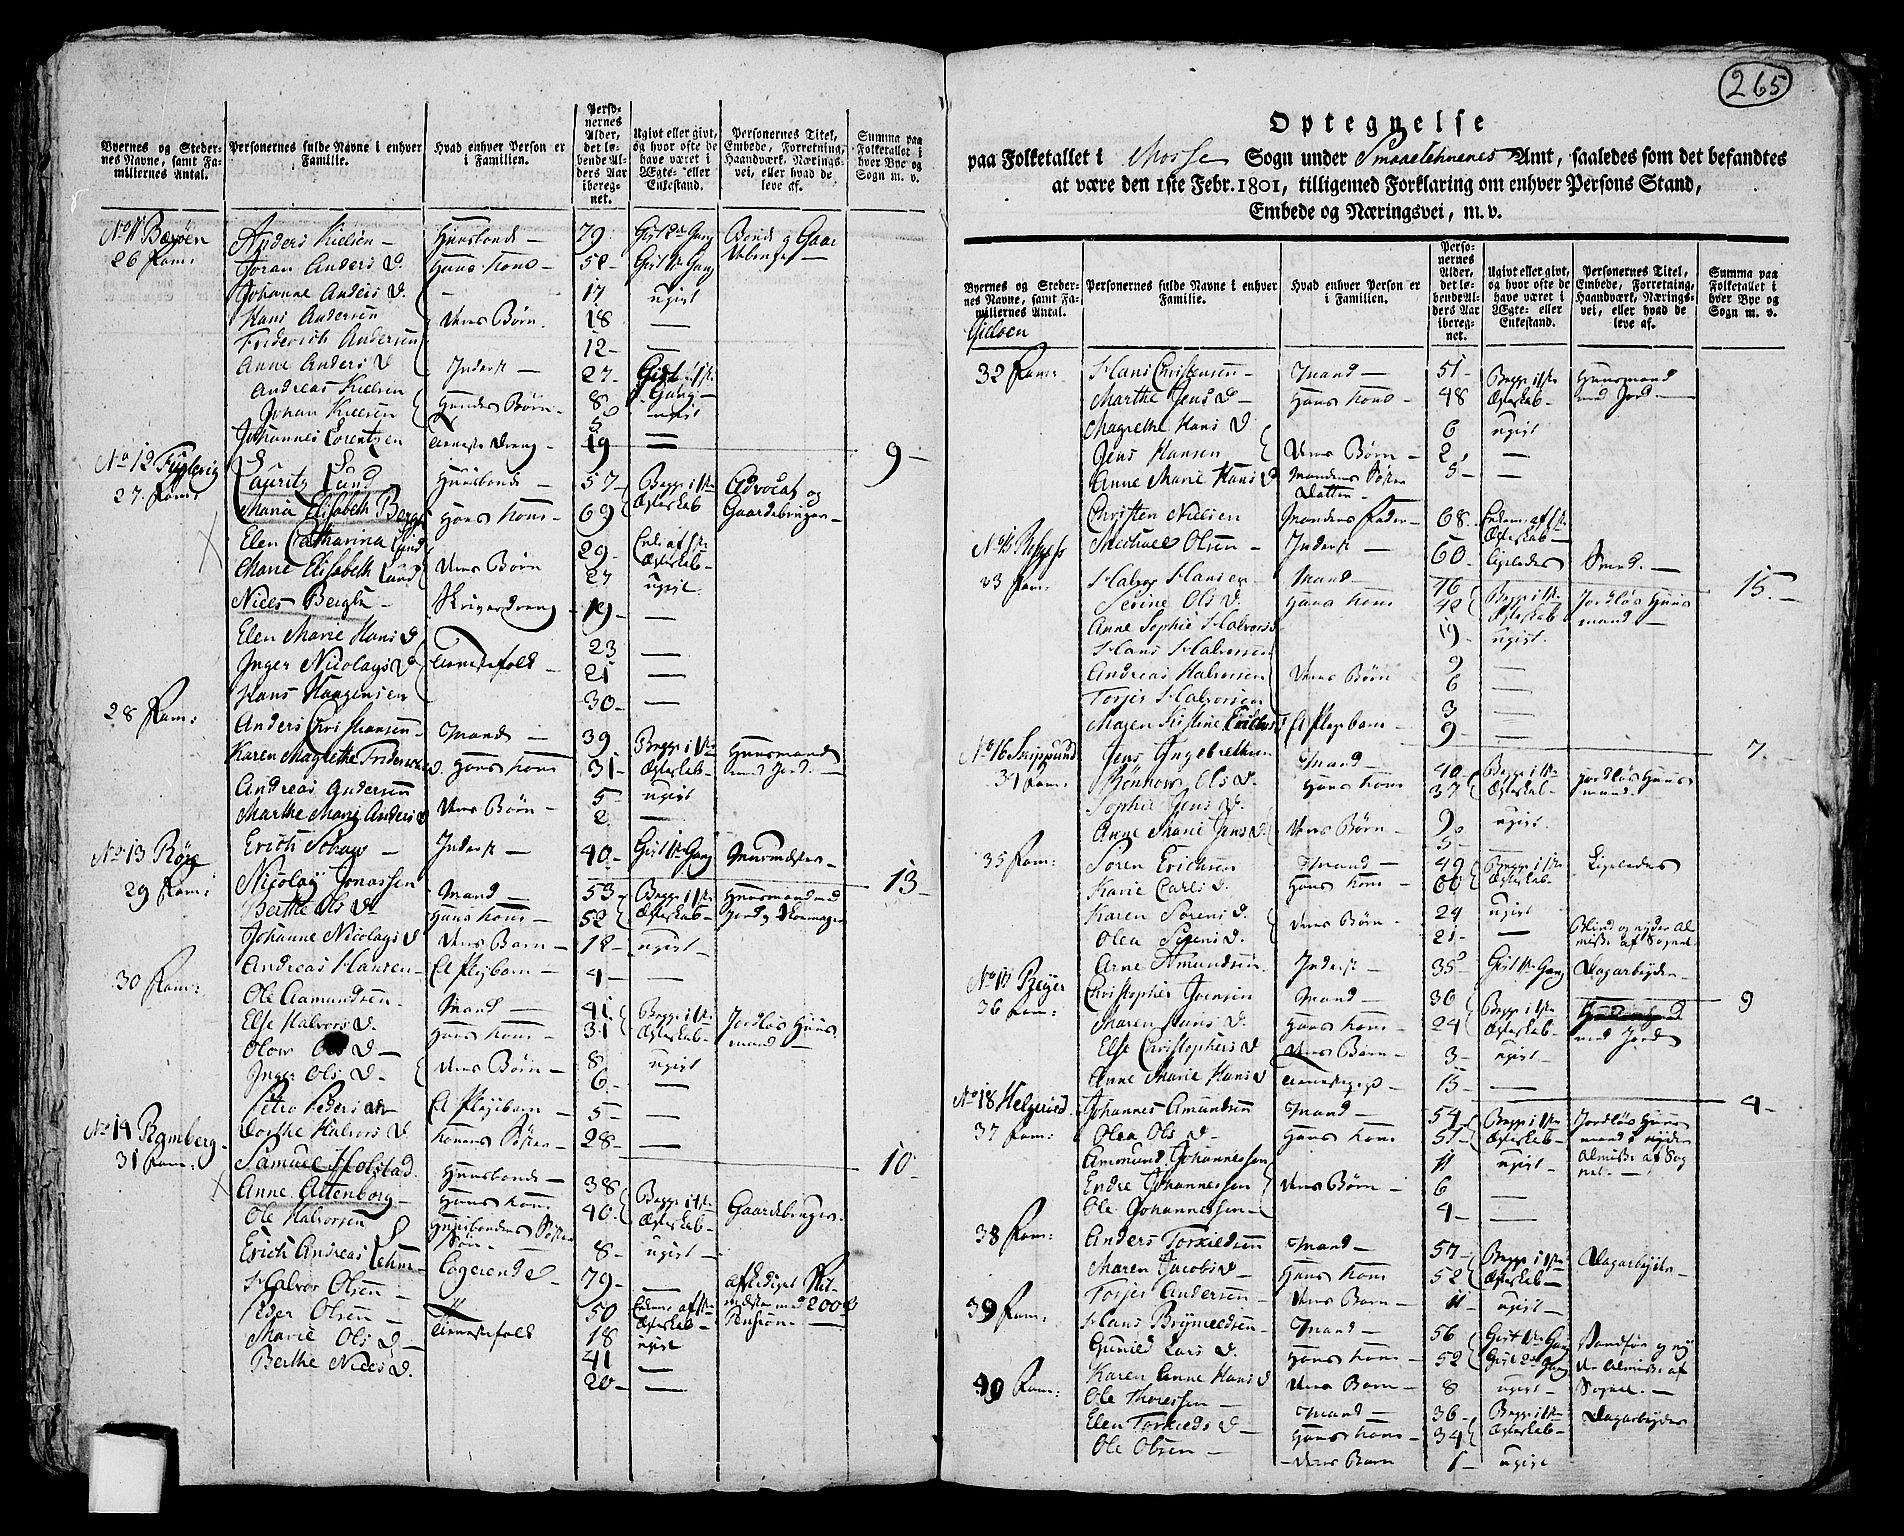 265
Byernes og Steder-
nes Navne, samt Fa-
miliernes Antal.
Personernes fulde Navne i enhver
Familie.
Hvad enhver Person er
i Familien.
Perso-
nernes
Alder,
det lø-
bende Al-
ders Aar
ibereg-
net.
Ugivt eller givt,
og hvor ofte de
have været i
Ægte- eller
Enkestand.
Personernes Titel,
Embede, Forretning,
Haandværk, Nærings-
vei, eller hvad de
leve af.
Summa paa
Folketallet i
hver Bye og
Sogn m. v.
26 Fam:
Anders Nielsen — Huusbonde — 79
Joran Anders D. Hans Kone — 52
Johanne Anders D. 17 ugift
Hans Andersen Deres Børn. 18 —
Friderich Andersen 12 —
Anne Anders D Inderst — 27
Andreas Nielsen 8
Johan Nielsen Hendes Børn 5 ugift
Johannes Lorentzen Tieneste Dreng 19 — 9
No 12 Fuglevig
27 Fam: Lauritz Lund Huusbonde 57 Begge i 1ste Ægteskab Advocat og Gaardebruger
Maria Elisabeth Berg Hans Kone 69
Elen Catharina Lund 29 Enke af 1ste Ægteskab
Marie Elisabeth Lund Deres Børn 27 ugift
Niels Bergh Skriverdreng 19 —
Elen Marie Hans D 23 —
Inger Nicolays D Tienestefolk 21 —
Hans Haagensen 30 —
28 Fam: Anders Christiansen Mand 39 Begge i 1ste Ægteskab Huusmand med Jord
Karen Magrethe Friderichs D. Hans Kone 31
Andreas Andersen 5 ugift
Marthe Marie Anders D Deres Børn 2 —
Erich Inderst 40 Gift 1ste Gang 13
No 13 Røge
29 Fam: Nicolay Jonassen Mand 53 Begge i 1ste Ægteskab Huusmand med Jord og Skomager
Berthe Ols D Hans Kone 52
Johanne Nicolays D Deres Barn 12 ugift
Andreas Hansen Et Plejebarn 4 —
30 Fam: Ole Aamundsen Mand 41 Begge i 1ste Ægteskab Jordløs Huusmand
Else Halvors D. Hans Kone 31
Olow Ols D 8 ugift
Inger Ols D. Deres Børn 6 —
Petro Peders D Et Plejebarn 5 —
Dorthe Halvors D Konens Søster 28 — 10
No 14 Ramberg
31 Fam: Samuel Holstad Huusbonde 38 Begge i 1ste Ægteskab Gaardebruger
Anne Altenborg Hans Kone 40
Ole Halvorsen Huusbondens Søster Søn 8 ugift
Erich Andreas Logerende 79 — afskediget med 200 Pension
Halvor Olsen 50 Enkem. af 1ste Ægteskab
Peder Olsen 18 ugift
Marie Ols D Tienestefolk 41 —
Berthe Niels D. 20 —
Optegnelse
paa Folketallet i Mosse Sogn under Smaalehnenes Amt, saaledes som det befandtes
at være den 1ste Febr. 1801, tilligemed Forklaring om enhver Persons Stand,
Embede og Næringsvei, m. v.
Byernes og Steder-
nes Navne, samt Fa-
miliernes Antal.
Personernes fulde Navne i enhver
Familie.
Hvad enhver Person er
i Familien.
Perso-
nernes
Alder,
det lø-
bende Al-
ders Aar
ibereg-
net.
Ugivt eller givt,
og hvor ofte de
have været i
Ægte- eller
Enkestand.
Personernes Titel,
Embede, Forretning,
Haandværk, Nærings-
vei, eller hvad de
leve af.
Summa paa
Folketallet i
hver Bye og
Sogn m. v.
32 Fam: Hans Christensen Mand 51 Begge i 1ste Ægteskab Huusmand med Jord
Marthe Jens D Hans Kone 48
Magrethe Hans D 6 ugift
Jens Hansen Deres Børn 2 —
Anne Marie Hans D Mandens Søster Datter 5 —
Christen Nielsen Mandens Fader 68 Enkem. af 1ste Ægteskab
Michael Olsen Inderst 60 ligeledes Smed 15
33 Fam: Halvor Hansen Mand 46 Begge i 1ste Ægteskab Jordløs Huusmand
Serine Ols D Hans Kone 42
Anne Sophie Halvors D 19 ugift
Hans Halvorsen 9 —
Andreas Halvorsen Deres Børn 6 —
Torjer Halvorsen 3 —
Maren Kistine Et Plejebarn 9 — 7
34 Fam: Jens Ingebrethsen Mand 40 Begge i 1ste Ægteskab Jordløs Huusmand
Rønnow Ols D. Hans Kone 37
Sophie Jens D. 9 ugift
Anne Marie Jens D Deres Børn 5 —
35 Fam: Søren Erichsen Mand 49 Begge i 1ste Ægteskab Ligeledes
Karie Carls D. Hans Kone 60
Karen Sørens D. Deres Børn 24 ugift
Olea Sørens D. 21 — Blind og nyder Almisse af Sognet
Arne Amundsen Inderst 35 Gift 1ste Gang Dagarbejder 9
36 Fam: Christopher Joensen Mand 36 Begge i 1ste Ægteskab med Jord
Maren Hans D. Hans Kone 24
Else Christophers D Deres Børn 3 ugift
Anne Marie Hans D Tienestepige 15 — 4
No 18
37 Fam: Johannes Amundsen Mand 54 Begge i 1ste Ægteskab Jordløs Huusmand nyder Almisse af Sognet
Olea Ols D Hans Kone 51
Ammund Johannessen 11 ugift
Endre Johannessen Deres Børn 6 —
Ole Johannessen 4 —
38 Fam: Anders Torkieldsen Mand 57 Begge i 1ste Ægteskab Dagarbejder
Maren Jacobs D Hans Kone 52
Torjer Andersen Deres Barn 11 ugift
39 Fam: Hans Brynildsen Mand 56 Gift 1ste Gang Vanfør og nyder Almisse af Sognet
Gunild Lars D. Hans Kone 52 Gift 2den Gang
Karen Anne Hans D Deres Barn 8 ugift
40 Fam: Ole Thoressen Mand 36 Begge i 1ste Ægteskab Dagarbejder
Elen Torkields D Hans Kone 34
Ole Olsen Deres Barn 1 ugift